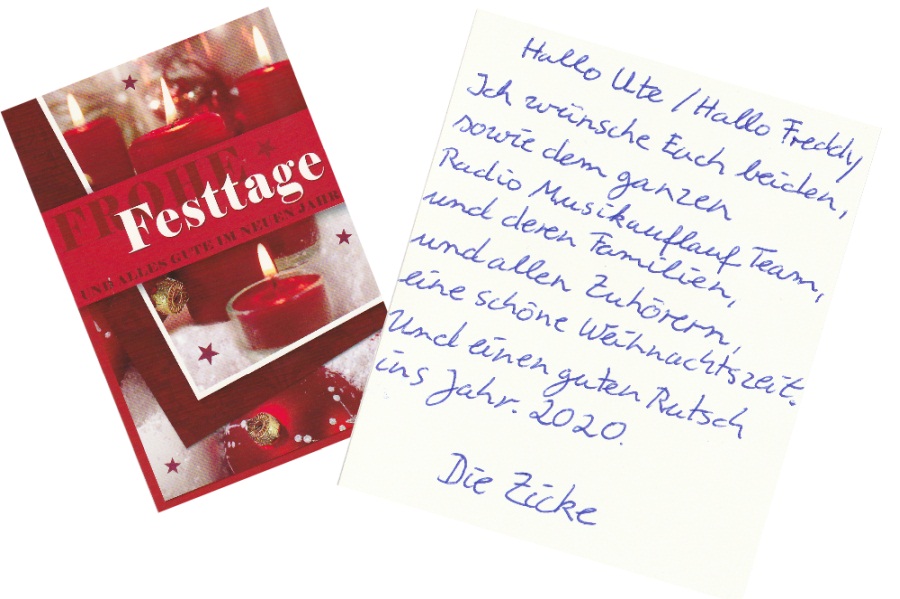 FROHE
Festtage
UND ALLES GUTE IM NEUEN JAHR
Hallo Ute / Hallo Freddy
Ich wünsche Euch beiden,
sowie dem ganzen
Radio Musikauflauf Team,
und deren Familien,
und allen Zuhörern,
eine schöne Weihnachtszeit.
Und einen guten Rutsch
ins Jahr. 2020.
Die Zicke